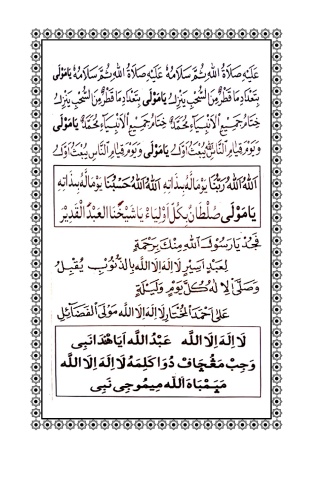 عَلَيْهِ صَلَاةُ اللهِ ثُمَّ سَلَامُهُ عَلَيْهِ صَلَاةُ اللهِ ثُمَّ سَلَامُهُ يَا مَوْلَى
بِتَعْدَادِ مَا قَطْرٌ مِنَ السُّحْبِ يَنْزِلُ بِتَعْدَادِ مَا قَطْرٌ مِنَ السُّحْبِ يَنْزِلُ يَا مَوْلَى
خِتَامُ جَمِيْعِ الْاَنْبِيَاءِ مُحَمَّدٌ خِتَامُ جَمِيْعِ الْاَنْبِيَاءِ مُحَمَّدٌ يَا مَوْلَى
وَيَوْمَ قِيَامِ النَّاسِ يُبْعَثُ اَوَّلُ يَا مَوْلَى وَيَوْمَ قِيَامِ النَّاسِ يُبْعَثُ اَوَّلُ
اَللهُ اَللهُ رَبُّنَا يَوْمَالَهُ بِذَاتِهِ اَللهُ اَللهُ حَسْبُنَا يَوْمَالَهُ بِذَاتِهِ
يَا مَوْلَى صُلْطَانٌ بِكُلِّ اَوْلِيَاءُ يَا شَيْخُنَا الْعَبْدُ الْقَدِيْرَ
فَجُدْ يَا رَسُوْلَ اللهِ مِنْكَ بِرَحْمَةٍ
لِعَبْدٍ اَسِيْرٍ لَا اِلَهَ اِلَّا اللهِ بِالذُّنُوْبِ يُقْبِلُ
وَصَلَّى اِلٰهُ كُلَّ يَوْمٍ وَلَيْلَةٍ
عَلَى اَحْمَدَ الْمُخْتَارِ لَا اِلَهَ اِلَّا اللهِ مَوْلَى الْفَضَائِلِ
لَا اِلَهَ اِلَّا اللهُ عَبْدُ اللهِ اَيَاهْدَا نَبِى
وَجِبْ مَڠُچَافْ دُوَا كَلِمَهْ لَا اِلَهَ اِلَّا اللهُ
اللهِ مِيمُوجِى نَبِى